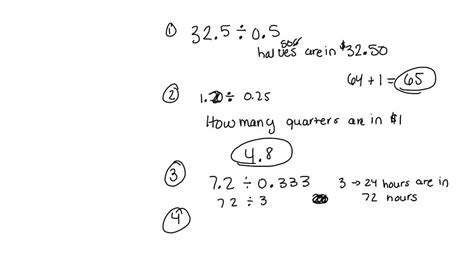 ① 32.5 ÷ 0.5
50¢
halves are in $32.50
64 + 1 = 65
② 1.2 ÷ 0.25
How many quarters are in $1
4.8
③ 7.2 ÷ 0.333 3 → 24 hours are in
72 ÷ 3 72 hours
④